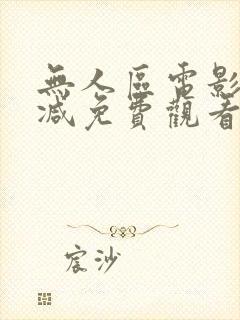 無人區電影
減免費觀看
宸沙